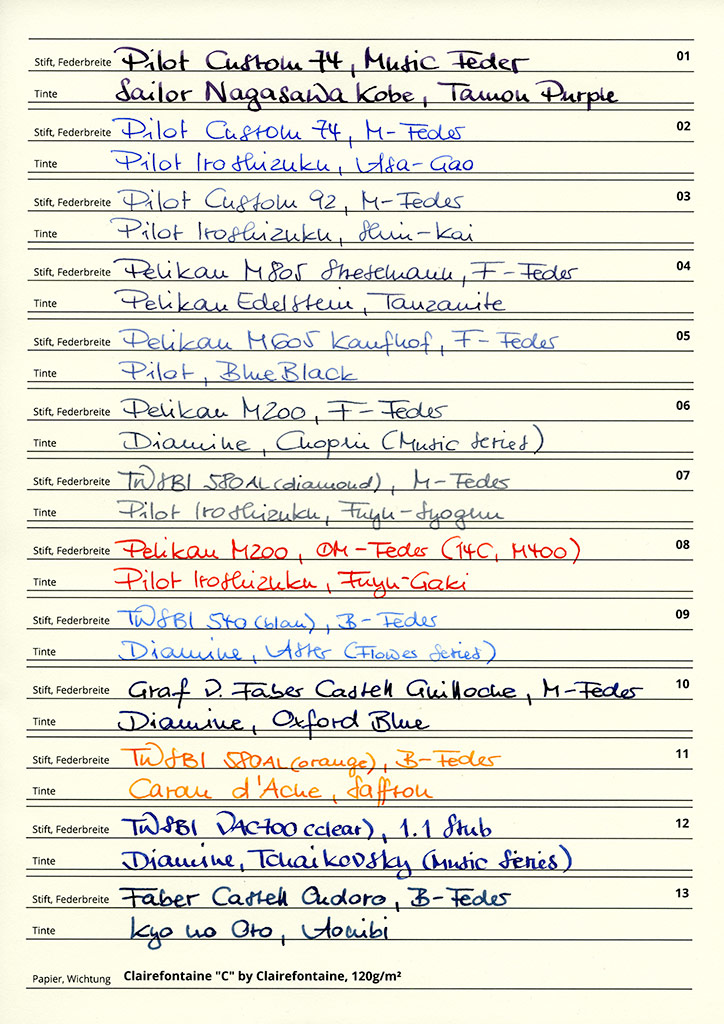 Stift, Federbreite Pilot Custom 74, Music Feder 01
Tinte Sailor Nagasawa Kobe, Tamon Purple
Stift, Federbreite Pilot Custom 74, M-Feder 02
Tinte Pilot Iroshizuku, Asa-Gao
Stift, Federbreite Pilot Custom 92, M-Feder 03
Tinte Pilot Iroshizuku, Shin-Kai
Stift, Federbreite Pelikan M805 Stresemann, F-Feder 04
Tinte Pelikan Edelstein, Tanzanite
Stift, Federbreite Pelikan M605 Kaufhof, F-Feder 05
Tinte Pilot, Blue Black
Stift, Federbreite Pelikan M200, F-Feder 06
Tinte Diamine, Chopin (Music Series)
Stift, Federbreite TWSBI 580AL (diamond), M-Feder 07
Tinte Pilot Iroshizuku, Fuyu-Syogun
Stift, Federbreite Pelikan M200, OM-Feder (14C, M400) 08
Tinte Pilot Iroshizuku, Fuyu-Gaki
Stift, Federbreite TWSBI 540 (blau), B-Feder 09
Tinte Diamine, Aster (Flower Series)
Stift, Federbreite Graf v. Faber Castell Guilloche, M-Feder 10
Tinte Diamine, Oxford Blue
Stift, Federbreite TWSBI 580AL (orange), B-Feder 11
Tinte Caran d'Ache, Saffron
Stift, Federbreite TWSBI VAC700 (clear), 1.1 Stub 12
Tinte Diamine, Tchaikovsky (Music Series)
Stift, Federbreite Faber Castell Ondoro, B-Feder 13
Tinte Kyo no Oto, Aonibi
Papier, Wichtung Clairefontaine "C" by Clairefontaine, 120g/m²